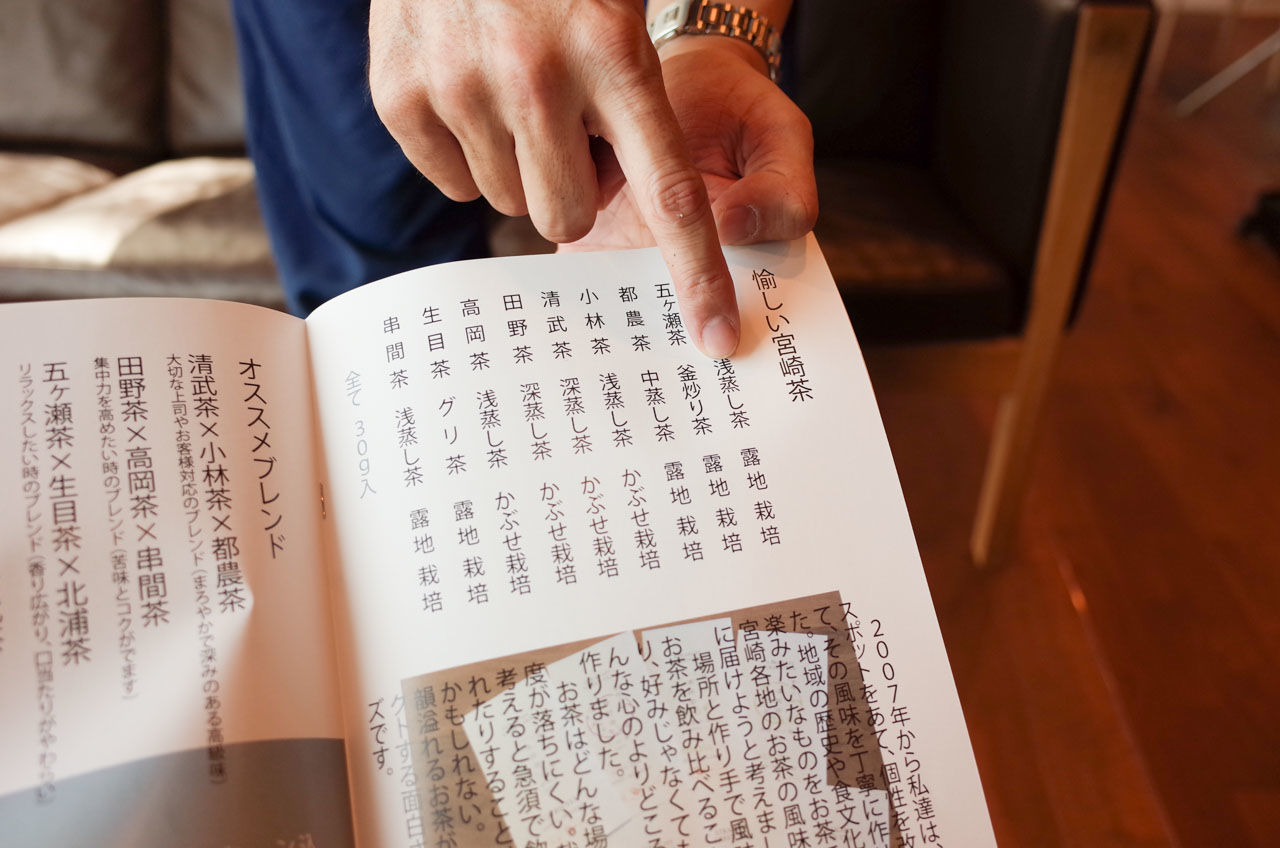 愉しい宮崎茶
浅蒸し茶 露地栽培
五ヶ瀬茶 釜炒り茶 露地栽培
都農茶 中蒸し茶 露地栽培
小林茶 浅蒸し茶 かぶせ栽培
清武茶 深蒸し茶 かぶせ栽培
田野茶 深蒸し茶 かぶせ栽培
高岡茶 浅蒸し茶 かぶせ栽培
生目茶 グリ茶 露地栽培
串間茶 浅蒸し茶 露地栽培
全て30g入
2007年から私達は、
スポットをあて、個性を改
て、その風味を丁寧に作
た。地域の歴史や食文化
楽みたいなものをお茶
宮崎各地のお茶の風味
に届けようと考えまし
場所と作り手で風
お茶を飲み比べるこ
り、好みじゃなくても
んな心のよりどころ
作りました。
お茶はどんな場
度が落ちにくい
考えると急須で飲
れたりすること
かもしれない。
韻溢れるお茶が
クトする面白さ
ズです。
オススメブレンド
清武茶×小林茶×都農茶
大切な上司やお客様対応のブレンド(まろやかで深みのある高級味)
田野茶×高岡茶×串間茶
集中力を高めたい時のブレンド(苦味とコクがでます)
五ヶ瀬茶×生目茶×北浦茶
リラックスしたい時のブレンド(香り広がり、口当たりがやわらかい)